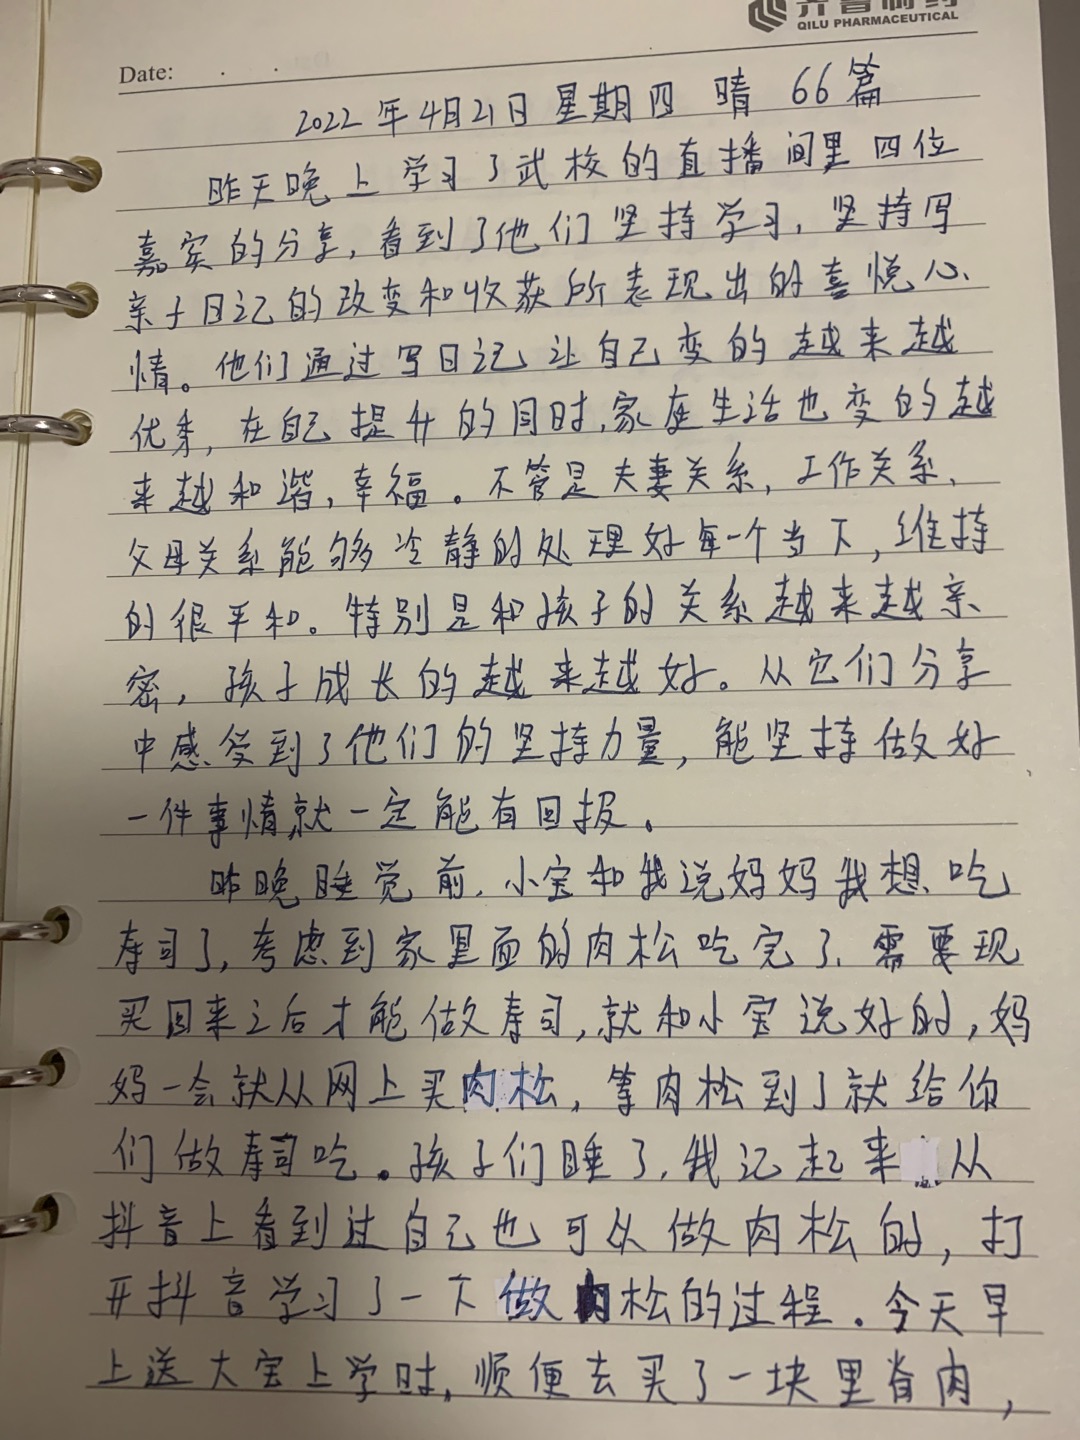 齐鲁制药
QILU PHARMACEUTICAL
Date: . .
2022年4月21日 星期四 晴 66篇
昨天晚上学习了武校的直播间里四位
嘉宾的分享,看到了他们坚持学习,坚持写
亲子日记的改变和收获所表现出的喜悦心
情。他们通过写日记让自己变的越来越
优秀,在自己提升的同时,家庭生活也变的越
来越和谐,幸福。不管是夫妻关系,工作关系、
父母关系能够冷静的处理好每一个当下,维持
的很平和。特别是和孩子的关系越来越亲
密,孩子成长的越来越好。从它们分享
中感受到了他们的坚持力量,能坚持做好
一件事情就一定能有回报。
昨晚睡觉前,小宝和我说妈妈我想吃
寿司了,考虑到家里面的肉松吃完了、需要现
买回来之后才能做寿司,就和小宝说好的,妈
妈一会就从网上买肉松,等肉松到了就给你
们做寿司吃。孩子们睡了,我记起来从
抖音上看到过自己也可以做肉松的,打
开抖音学习了一下做肉松的过程。今天早
上送大宝上学时,顺便去买了一块里脊肉,